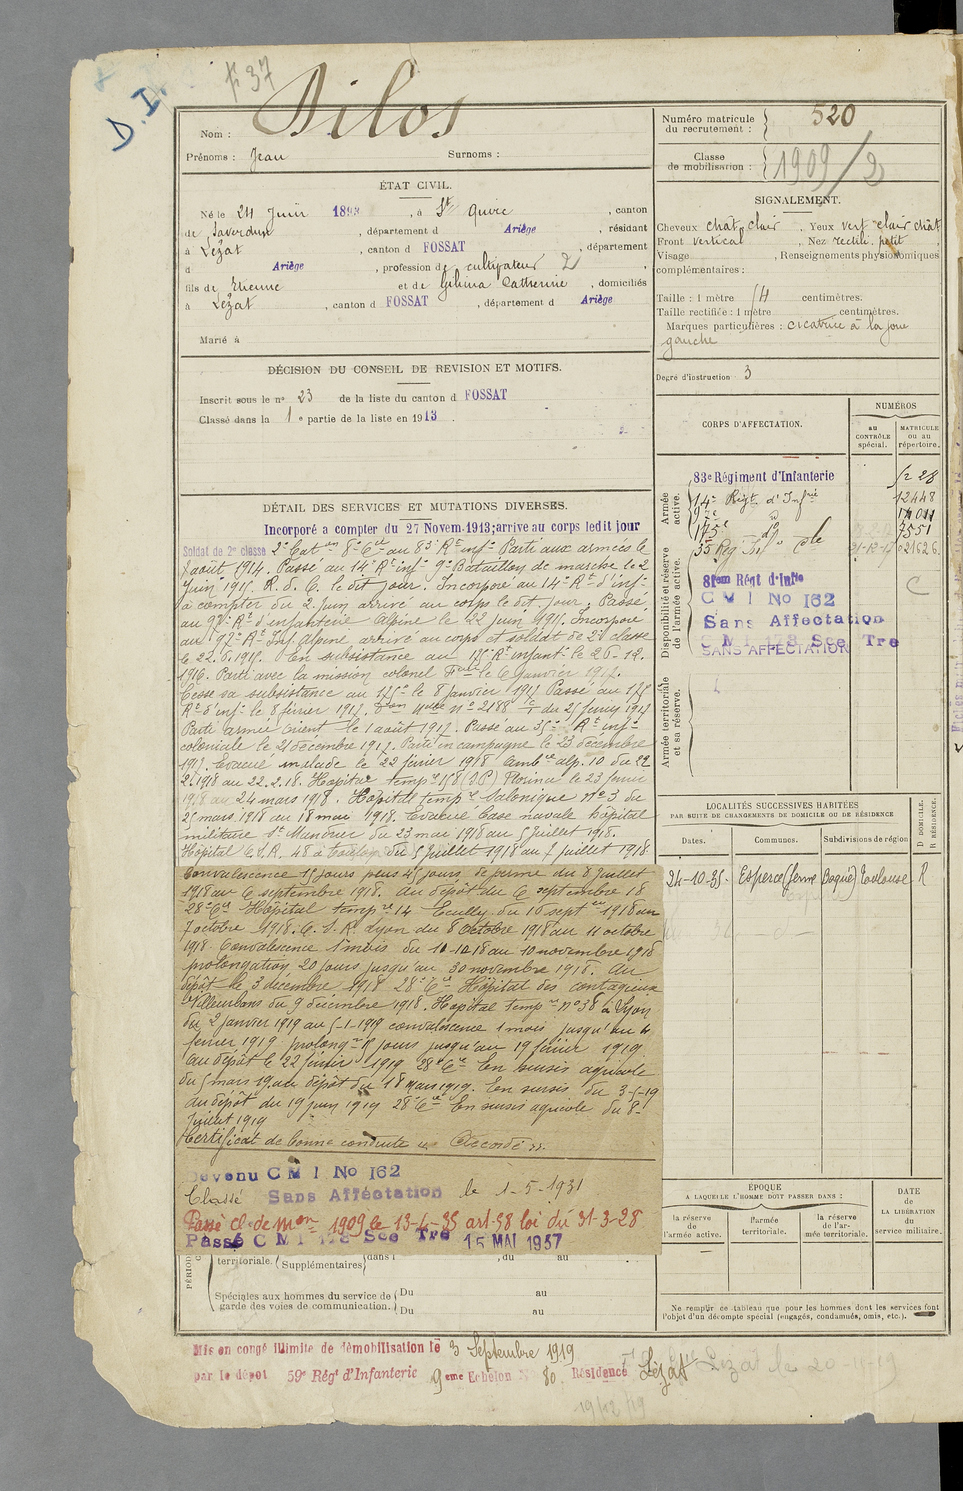 p 37
D. I.
Nom : Dilos
Prénoms : Jean Surnoms :
ÉTAT CIVIL.
Né le 24 Juin 1893, à St Quirc, canton
de Saverdun, département d Ariège, résidant
à Lézat, canton d FOSSAT, département
d Ariège, profession de cultivateur 2
fils de Etienne et de Catherine, domiciliés
à Lézat, canton d FOSSAT, département d Ariège
Marié à
DÉCISION DU CONSEIL DE REVISION ET MOTIFS.
Inscrit sous le n° 23 de la liste du canton d FOSSAT
Classé dans la 1 e partie de la liste en 1913.
DÉTAIL DES SERVICES ET MUTATIONS DIVERSES.
Incorporé a compter du 27 Novem. 1913; arrive au corps ledit jour
Soldat de 2e classe 2e Cat on 8e Cie au 83e Rt infie Parti aux armées le
7 août 1914. Passé au 14e Rt infie 9e Bataillon de marche le 2
Juin 1915. R. d. C. le dit jour. Incorporé au 14e Rt d'infie
à compter du 2 Juin arrivé au corps le dit jour, Passé
au 97e Rt d'infanterie Alpine le 22 juin 1915. Incorporé
au 97e Rt Inf. alpine arrivé au corps et soldat de 2e classe
le 22.6.1915. En subsistance au 175e Rt infant. le 26.12.
1916. Parti avec la mission colonel le 6 janvier 1917.
Cesse sa subsistance au 175e le 8 janvier 1917 Passé au 175
Rt d'infie le 8 février 1917. Don Mlle n° 2188 du 25 Janv 1917
Parti armée orient le 1 août 1917. Passé au 35e Rt infie
coloniale le 21 décembre 1917. Parti en campagne le 23 décembre
1917. Evacué malade le 22 février 1918 Ambce alp. 10 du 22
2.1918 au 22.2.18. Hopital tempre Florina le 23 février
1918 au 24 mars 1918. Hôpital tempre Salonique N° 3 du
25 mars 1918 au 18 mai 1918. Evacué base navale hôpital
militaire St Mandrier du 23 mai 1918 au 5 Juillet 1918.
Hôpital C.S.R. 48 à Toulon du 5 Juillet 1918 au 7 juillet 1918
Convalescence 15 jours plus 45 jours de perme du 8 Juillet
1918 au 6 septembre 1918. Au dépôt du 6 septembre 18
28e Cie Hôpital tempre 14 Ecully du 16 septbre 1918 au
7 octobre 1918. C.S.R. Lyon du 8 octobre 1918 au 11 octobre
1918. Convalescence 1 mois du 10-10 18 au 10 novembre 1918
prolongation 20 jours jusqu'au 30 novembre 1918. Au
dépôt le 3 décembre 1918 28e Cie Hôpital des contagieux
Villeurbans du 9 décembre 1918. Hopital tempre n° 38 à Lyon
du 2 Janvier 1919 au 5-1-1919 convalescence 1 mois jusqu'au 4
février 1919 prolongon jours jusqu'au 19 février 1919
Au dépôt le 22 février 1919 28e Cie En sursis agricole
du 5 mars 19 au dépôt du 18 mars 1919. En sursis du 3-5-19
Au dépôt du 19 juin 1919 28e Cie En sursis agricole du 8-
Juillet 1919
Certificat de bonne conduite "Accordé".
Devenu C M I No 162
Classé Sans Affectation le 1-5-1931
Passé cl. de mon 1909 le 13-4-35 art. 58 loi du 31-3-28
Passé C M I 173 Sce Tre 15 MAI 1937
PÉRIOD
territoriale. (Supplémentaires) dans l , du au
Spéciales aux hommes du service de garde des voies de communication. Du au
Du au
Mis en congé illimite de démobilisation le 3 Septembre 1919
par le dépot 59e Régt d'Infanterie 9eme Echelon N° 80. Résidence Lézat
Lézat le 20
19/12/19
Numéro matricule du recrutement : 520
Classe de mobilisation : 1909/2
SIGNALEMENT.
Cheveux chât. clair. Yeux vert clair chât
Front vertical, Nez rectil. petit
Visage , Renseignements physionomiques
complémentaires :
Taille : 1 mètre centimètres.
Taille rectifiée : 1 mètre centimètres.
Marques particulières : cicatrice à la joue
gauche
Degré d'instruction 3
CORPS D'AFFECTATION.
NUMÉROS
au CONTRÔLE spécial.
MATRICULE ou au répertoire.
Armée active.
83e Régiment d'Infanterie
14e Régt d'Infrie 12448
97e d°
175e d° 7551
35 Rég. Inf. Cle 21-12-17 021626.
Disponibilité et réserve de l'armée active.
81em Régt d'Infie
C M I No 162
Sans Affectation
C M I 173 Sce Tre
SANS AFFECTATION
C
Armée territoriale et sa réserve.
LOCALITÉS SUCCESSIVES HABITÉES
PAR SUITE DE CHANGEMENTS DE DOMICILE OU DE RÉSIDENCE
Dates. Communes. Subdivisions de région
D DOMICILE.
R RÉSIDENCE.
24-10-35. Esperce (ferme Baqué) Toulouse R
ÉPOQUE
A LAQUELLE L'HOMME DOIT PASSER DANS :
la réserve de l'armée active.
l'armée territoriale.
la réserve de l'armée territoriale.
DATE de LA LIBÉRATION du service militaire.
Ne remplir ce tableau que pour les hommes dont les services font
l'objet d'un décompte spécial (engagés, condamnés, omis, etc.).